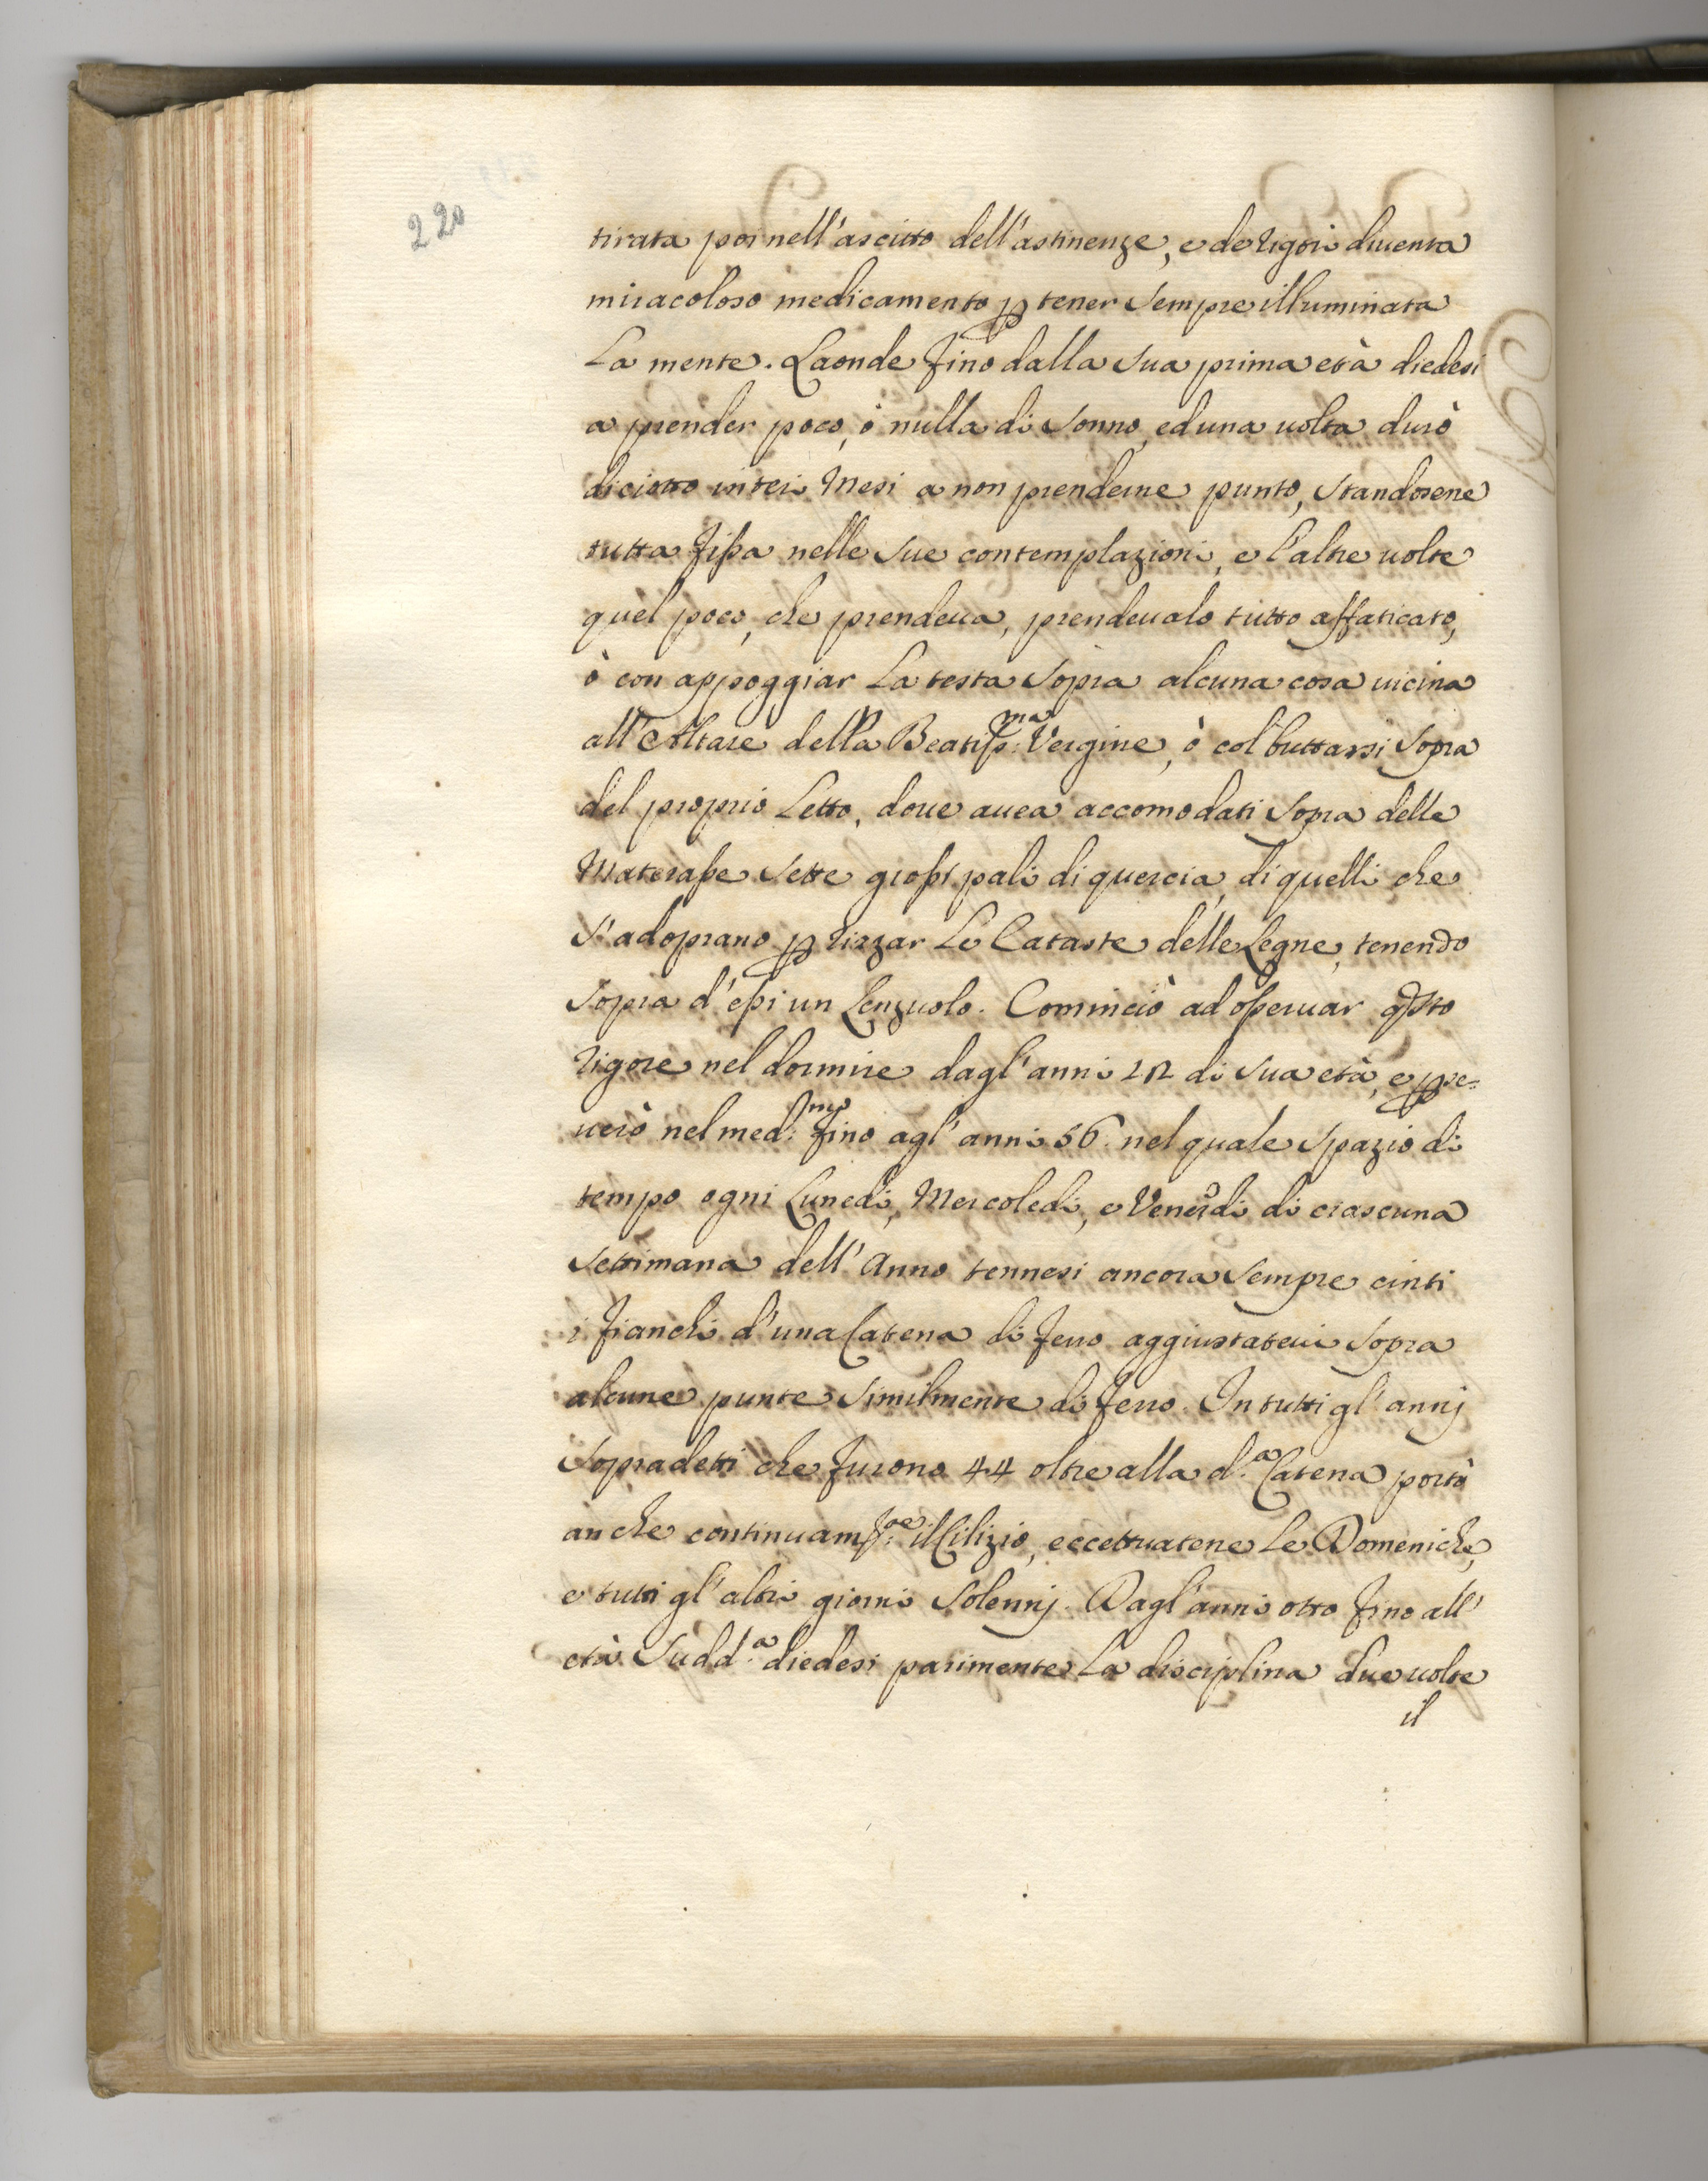 220
tirata poi nell'asciutto dell'astinenze, e de rigori diuenta
miracoloso medicamento ꝑ tener sempre illuminata
La mente. Laonde fino dalla sua prima età diedesi
a prender poco, ò nulla di sonno, ed una uolta durò
diciotto interi Mesi a non prenderne punto, standosene
tutta fissa nelle sue contemplazioni, e l'altre uolte
quel poco, che prendeua, prendeualo tutto affaticato,
ò con appoggiar La testa sopra alcuna cosa uicina
all'Altare della Beatiss:ma Vergine, ò col buttarsi sopra
del proprio Letto, doue auea accomodati sopra delle
Materasse sette grossi pali di quercia, di quelli che
s'adoprano ꝑ rizzar Le Cataste delle Legne, tenendo
sopra d'essi un Lenzuolo. Cominciò ad osseruar qsto
rigore nel dormire dagl'anni 12 di sua età, e ꝑse=
uerò nel med:mo fino agl'anni 56. nel quale spazio di
tempo ogni Lunedi, Mercoledi, e Venerdi di ciascuna
settimana dell'Anno tennesi ancora sempre cinti
i fianchi d'una Catena di ferro aggiustateui sopra
alcune punte similmente di ferro. In tutti gl'annj
sopradetti che furono 44 oltre alla d.a Catena portò
anche continuam:te il Cilizio, eccettuatene Le Domeniche,
e tutti gl'altri giorni solennj. Dagl'anni otto fino all'
età sudd.a diedesi parimente La disciplina due uolte
il